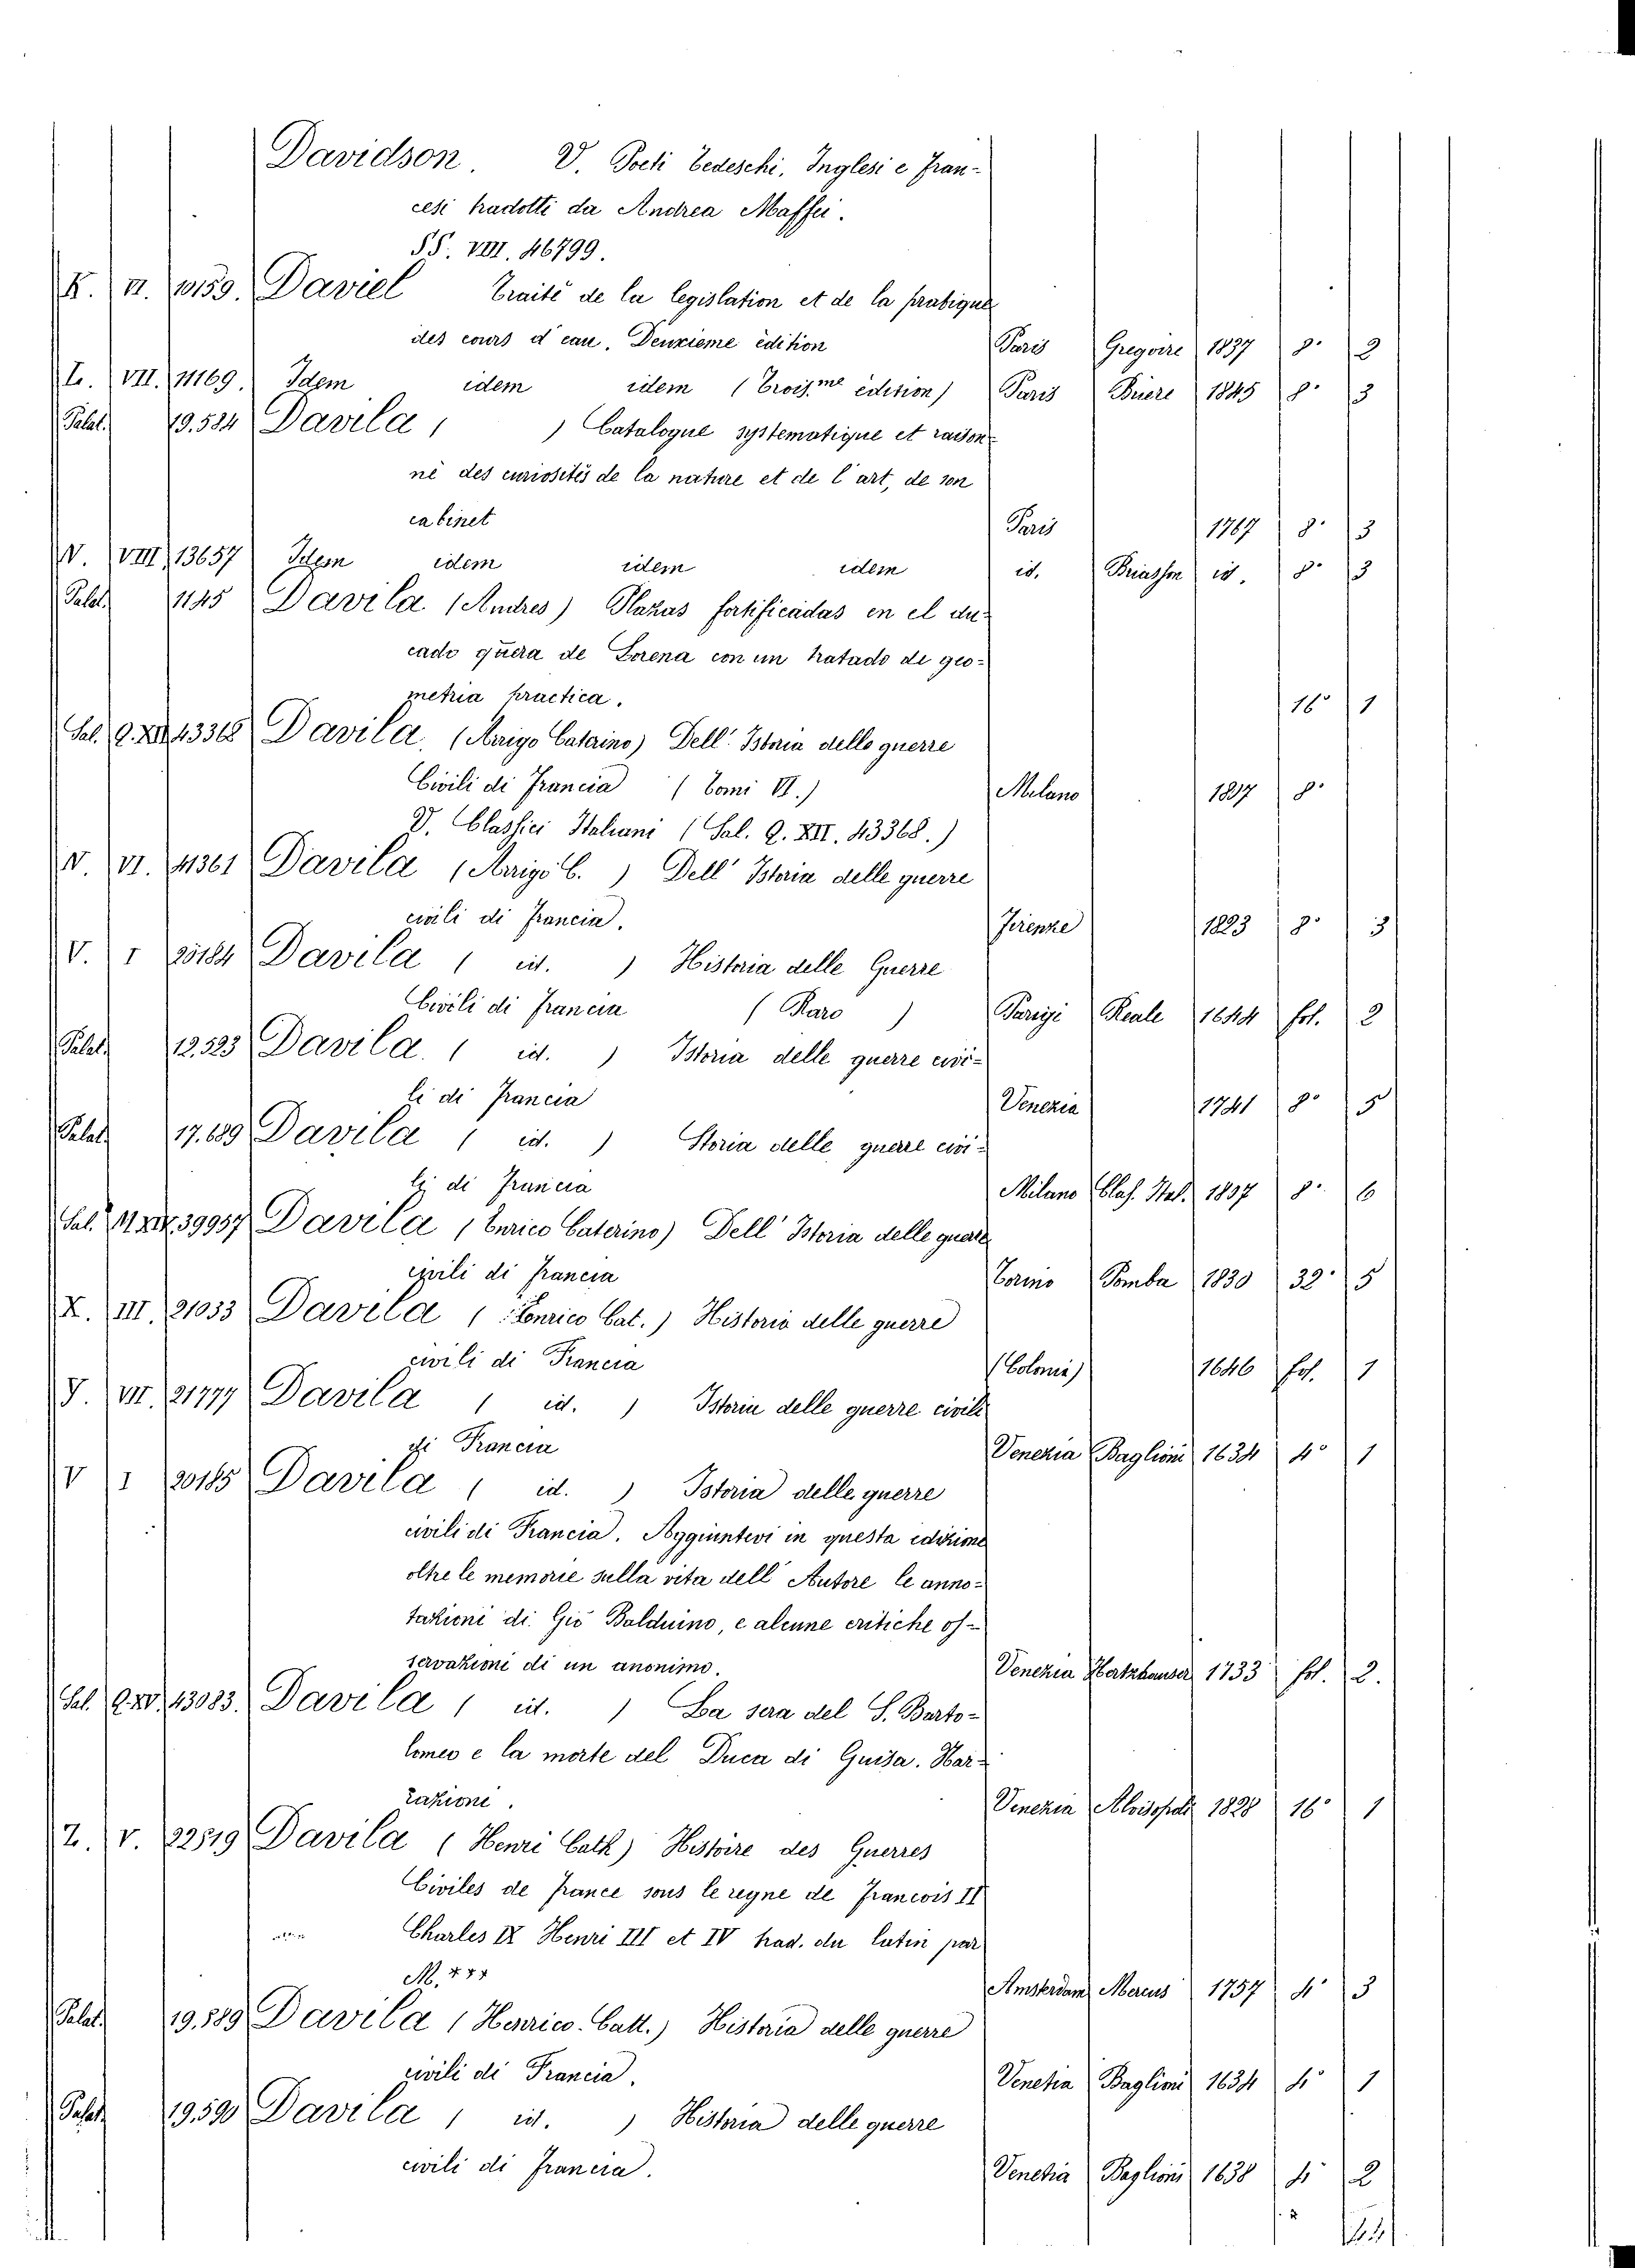 Davidson. V. Poeti Tedeschi, Inglesi e Fran-
cesi tradotti da Andrea Maffei.
SS. VIII. 46799.
K. II. 10159. Daviel Traité de la legislation et de la pratique
des cours d'eau. Deuxieme édition Paris Gregoire 1837 8° 2
L. VII. 11169. Idem idem idem (Trois.me édition) Paris Buere 1845 8° 3
Palat. 19.524 Davila ( ) Catalogue systematique et raison-
né des curiosités de la nature et de l'art, de son
cabinet Paris 1767 8° 3
V. VIII 13657 Idem idem idem idem id. Briasson id. 8° 3
Palat. 1145 Davila (Andres) Plazas fortificadas en el du-
cado quera de Lorena con un tratado de geo-
metria practica. 16° 1
Sal. Q. XII 43368 Davila, (Arrigo Catarino) Dell' Istoria delle guerre
Civili di Francia (Tomi VI.) Milano 1807 8°
V. Classici Italiani (Sal. Q. XII. 43368.)
V. VI. 41361 Davila (Arrigo C. ) Dell' Istoria delle guerre
civili di Francia. Firenze 1823 8° 3
V. I 20184 Davila ( id. ) Historia delle Guerre
Civili di Francia (Raro ) Parigi Reale 1644 fol. 2
Palat. 12.523 Davila. ( id. ) Istoria delle guerre civi-
li di Francia Venezia 1741 8° 5
Palat. 17.689 Davila ( id. ) Storia delle guerre civi-
li di Francia Milano Clas. Ital. 1807 8° 6
Sal. M XIV. 39957 Davila (Enrico Caterino) Dell' Istoria delle guerre
civili di Francia Torino Pomba 1830 32° 5
X. III. 21033 Davila (Henrico Cat.) Historia delle guerre
civili di Francia (Colonia) 1646 fol. 1
Y. VII. 21777 Davila ( id. ) Istoria delle guerre civili
di Francia Venezia Baglioni 1634 4° 1
V I 20185 Davila ( id. ) Istoria delle guerre
civili di Francia. Aggiuntevi in questa edizione
oltre le memorie sulla vita dell' Autore le anno-
tazioni di Gio Balduino, e alcune critiche os-
servazioni di un anonimo. Venezia Hertzhauser 1733 fol. 2.
Sal. Q. XV. 43083. Davila ( id. ) La sera del S. Barto-
lomeo e la morte del Duca di Guisa. Nar-
razione. Venezia Alvisopoli 1828 16° 1
Z. V. 22519 Davila (Henri Cath) Histoire des Guerres
Civiles de France sous le regne de Francois II
Charles IX Henri III et IV trad. du latin par
M. *** Amsterdam Mercus 1757 4° 3
Palat. 19.589 Davila (Henrico Catt.) Historia delle guerre
civili di Francia. Venetia Baglioni 1634 4° 1
Palat. 19.590 Davila ( id. ) Historia delle guerre
civili di Francia. Venetia Baglioni 1638 4° 2